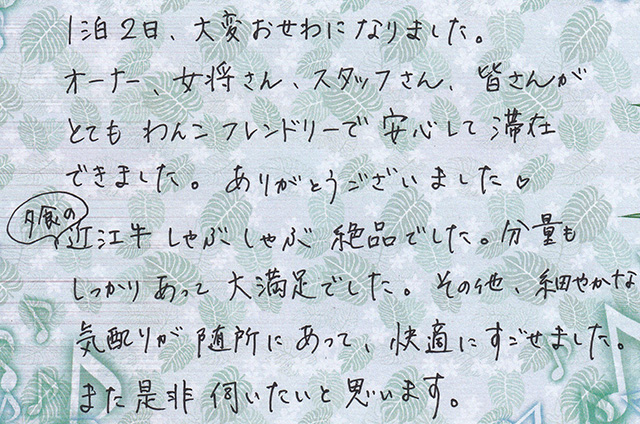 1泊2日、大変おせわになりました。
オーナー、女将さん、スタッフさん、皆さんが
とても わんこフレンドリーで 安心して 滞在
できました。ありがとうございました♡
夕食の
近江牛 しゃぶしゃぶ 絶品でした。分量も
しっかり あって 大満足でした。その他、細やかな
気配りが 随所に あって、快適に すごせました。
また 是非 伺いたいと 思います。